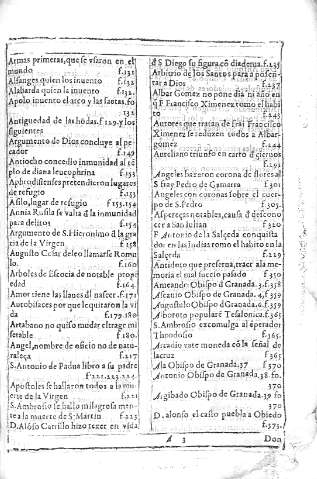 Armas primeras, que se vsaron en el
mundo f.131
Alfanges quien los inuento f.132
Alabarda quien la inuento f.132.
Apolo inuento el arco y las saetas. fo
132
Antiguedad de las bodas. f 129. y los
siguientes
Argumento de Dios concluye al pe-
cador f.149
Antiocho concedio inmunidad al tē
plo de diana leucophrina f.153
Aphrodisenses pretendieron lugares
de refugio f.153
Asilo, lugar de refugio f 153.154
Annia Rufila se valia d la inmunidad
para delitos f.154
Argumento de S. Hieronimo d la gra
cia de la Virgen f 158
Augusto Cesar deseo llamarse Romu
lo. f.160
Arboles de Escocia de notable prop
edad f.164.
Amor tiene las llaues dl nascer f.171
Autobifaces por que le quitaron la vi
da f.179.180
Artabano no quiso mudar el trage mi
serable f 180.
Angel, nombre de oficio no de natu-
raleça f.217
S. Antonio de Padua libro a su padre
f 222.223.224.
Apostoles se hallaron todos a la mu
erte de la Virgen f.221
S. Ambrosio se hallo milagrosa men-
te a la muerte de S. Martin f 223
D. Alōso Carrillo hizo tener en vida
d S Diego su figura cō diadema. f.235
Arbitrio de los Santos para aposen-
tar a Dios f.237
Albar Gomez no pone dia ni año en
q̄ F Francisco Ximenez tomo el habi
to f.243
Autores que tratan de frai Francisco
Ximenez se reduzen todos a Albar
gomez f.244
Aureliano triunfo en carto d cieruos
f.295
Angeles hazeron corona de flores al
S fray Pedro de Gamarra f 301
Angeles con coronas sobre el cuer-
po de S. Pedro f 305.
Asperezas notables, causa d descono
cer a San Iulian f 320
F Antonio de la Salçeda conquista
dor en las Indias romo el habito en la
Salçeda f.229
Antidoto que preserua, traer a la me-
moria el mal sucesso pasado f 350
Ameando Obispo d Granada. 3.f 358
Ascanio Obispo de Granada. 4.f 359
Augustolo Obispo d Granada. 6.f 359
Alboroto popular ē Tesalonica. f.365
S. Ambrosio excomulga al ēperador
Theodosio f 365.
Arcadio vate moneda cō la señal de
la cruz f 365
Ala Obispo de Granada. 37 f 370
Antonio Obispo de Granada. 38 fo.
370
Argibado Obispo de Granada. 39 fo
370
D. alonso el casto puebla a Obiedo
f.373.
A 3 Don